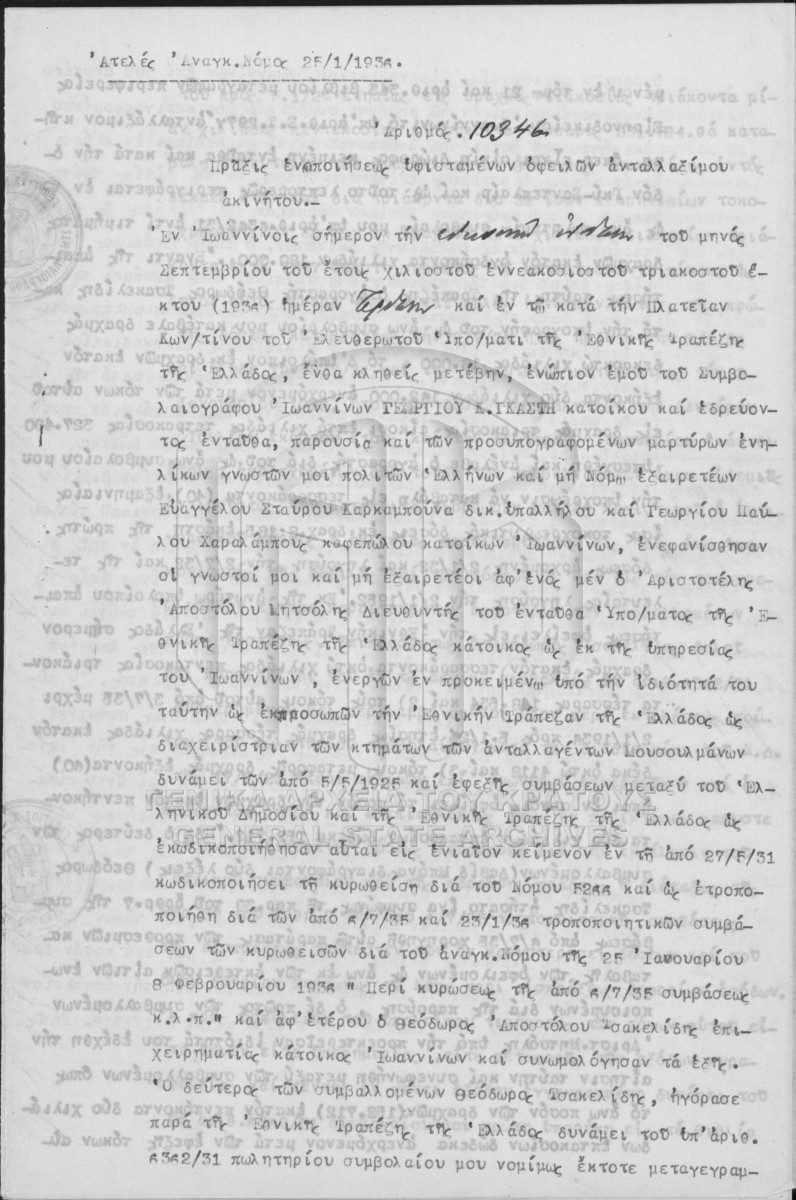 Ἀτελές Ἀναγκ.Νόμος 25/1/1936.
Ἀριθμός.10346.
Πρᾶξις ἑνοποιήσεως ὑφισταμένων ὀφειλῶν ἀνταλλαξίμου
ἀκινήτου.-
Ἐν Ἰωαννίνοις σήμερον τήν τοῦ μηνός
Σεπτεμβρίου τοῦ ἔτους χιλιοστοῦ ἐννεακοσιοστοῦ τριακοστοῦ ἕ-
κτου (1936) ἡμέραν καί ἐν τῶ κατά τήν Πλατεῖαν
Κων/τίνου τοῦ Ἐλευθερωτοῦ Ὑπο/ματι τῆς Ἐθνικῆς Τραπέζης
τῆς Ἑλλάδος, ἔνθα κληθείς μετέβην, ἐνώπιον ἐμοῦ τοῦ Συμβο-
λαιογράφου Ἰωαννίνων ΓΕΩΡΓΙΟΥ Δ.ΓΚΑΣΤΗ κατοίκου καί ἑδρεύον-
τος ἐνταῦθα, παρουσίᾳ καί τῶν προσυπογραφομένων μαρτύρων ἐνη-
λίκων γνωστῶν μοι πολιτῶν Ἑλλήνων καί μή Νόμῳ ἐξαιρετέων
Εὐαγγέλου Σταύρου Καρκαμπούνα δικ.ὑπαλλήλου καί Γεωργίου Παύ-
λου Χαραλάμπους καφεπώλου κατοίκων Ἰωαννίνων, ἐνεφανίσθησαν
οἱ γνωστοί μοι καί μή ἐξαιρετέοι ἀφ'ἑνός μέν ὁ Ἀριστοτέλης
Ἀποστόλου Μητσόλης Διευθυντής τοῦ ἐνταῦθα Ὑπο/ματος τῆς Ἐ-
θνικῆς Τραπέζης τῆς Ἑλλάδος κάτοικος ὡς ἐκ τῆς ὑπηρεσίας
του Ἰωαννίνων , ἐνεργῶν ἐν προκειμένῳ ὑπό τήν ἰδιότητά του
ταύτην ὡς ἐκπροσωπῶν τήν Ἐθνικήν Τράπεζαν τῆς Ἑλλάδος ὡς
διαχειρίστριαν τῶν κτημάτων τῶν ἀνταλλαγέντων Μουσουλμάνων
δυνάμει τῶν ἀπό 5/5/1925 καί ἐφεξῆς συμβάσεων μεταξύ τοῦ Ἑλ-
ληνικοῦ Δημοσίου καί τῆς Ἐθνικῆς Τραπέζης τῆς Ἑλλάδος ὡς
ἐκωδικοποιήθησαν αὗται εἰς ἑνιαῖον κείμενον ἐν τῇ ἀπό 27/5/31
κωδικοποιήσει τῇ κυρωθείσῃ διά τοῦ Νόμου 5266 καί ὡς ἐτροπο-
ποιήθη διά τῶν ἀπό 6/7/35 καί 23/1/36 τροποποιητικῶν συμβά-
σεων τῶν κυρωθεισῶν διά τοῦ ἀναγκ.Νόμου τῆς 25 Ἰανουαρίου
8 Φεβρουαρίου 1936 " Περί κυρώσεως τῆς ἀπό 6/7/35 συμβάσεως
κ.λ.π." καί ἀφ'ἑτέρου ὁ Θεόδωρος Ἀποστόλου Τσακελίδης ἐπι-
χειρηματίας κάτοικος Ἰωαννίνων καί συνωμολόγησαν τά ἑξῆς.
Ὁ δεύτερος τῶν συμβαλλομένων Θεόδωρος Τσακελίδης, ἠγόρασε
παρά τῆς Ἐθνικῆς Τραπέζης τῆς Ἑλλάδος δυνάμει τοῦ ὑπ'ἀριθ.
6362/31 πωλητηρίου συμβολαίου μου νομίμως ἔκτοτε μεταγεγραμ-
ΓΕΝΙΚΑ ΑΡΧΕΙΑ ΤΟΥ ΚΡΑΤΟΥΣ
GENERAL STATE ARCHIVES